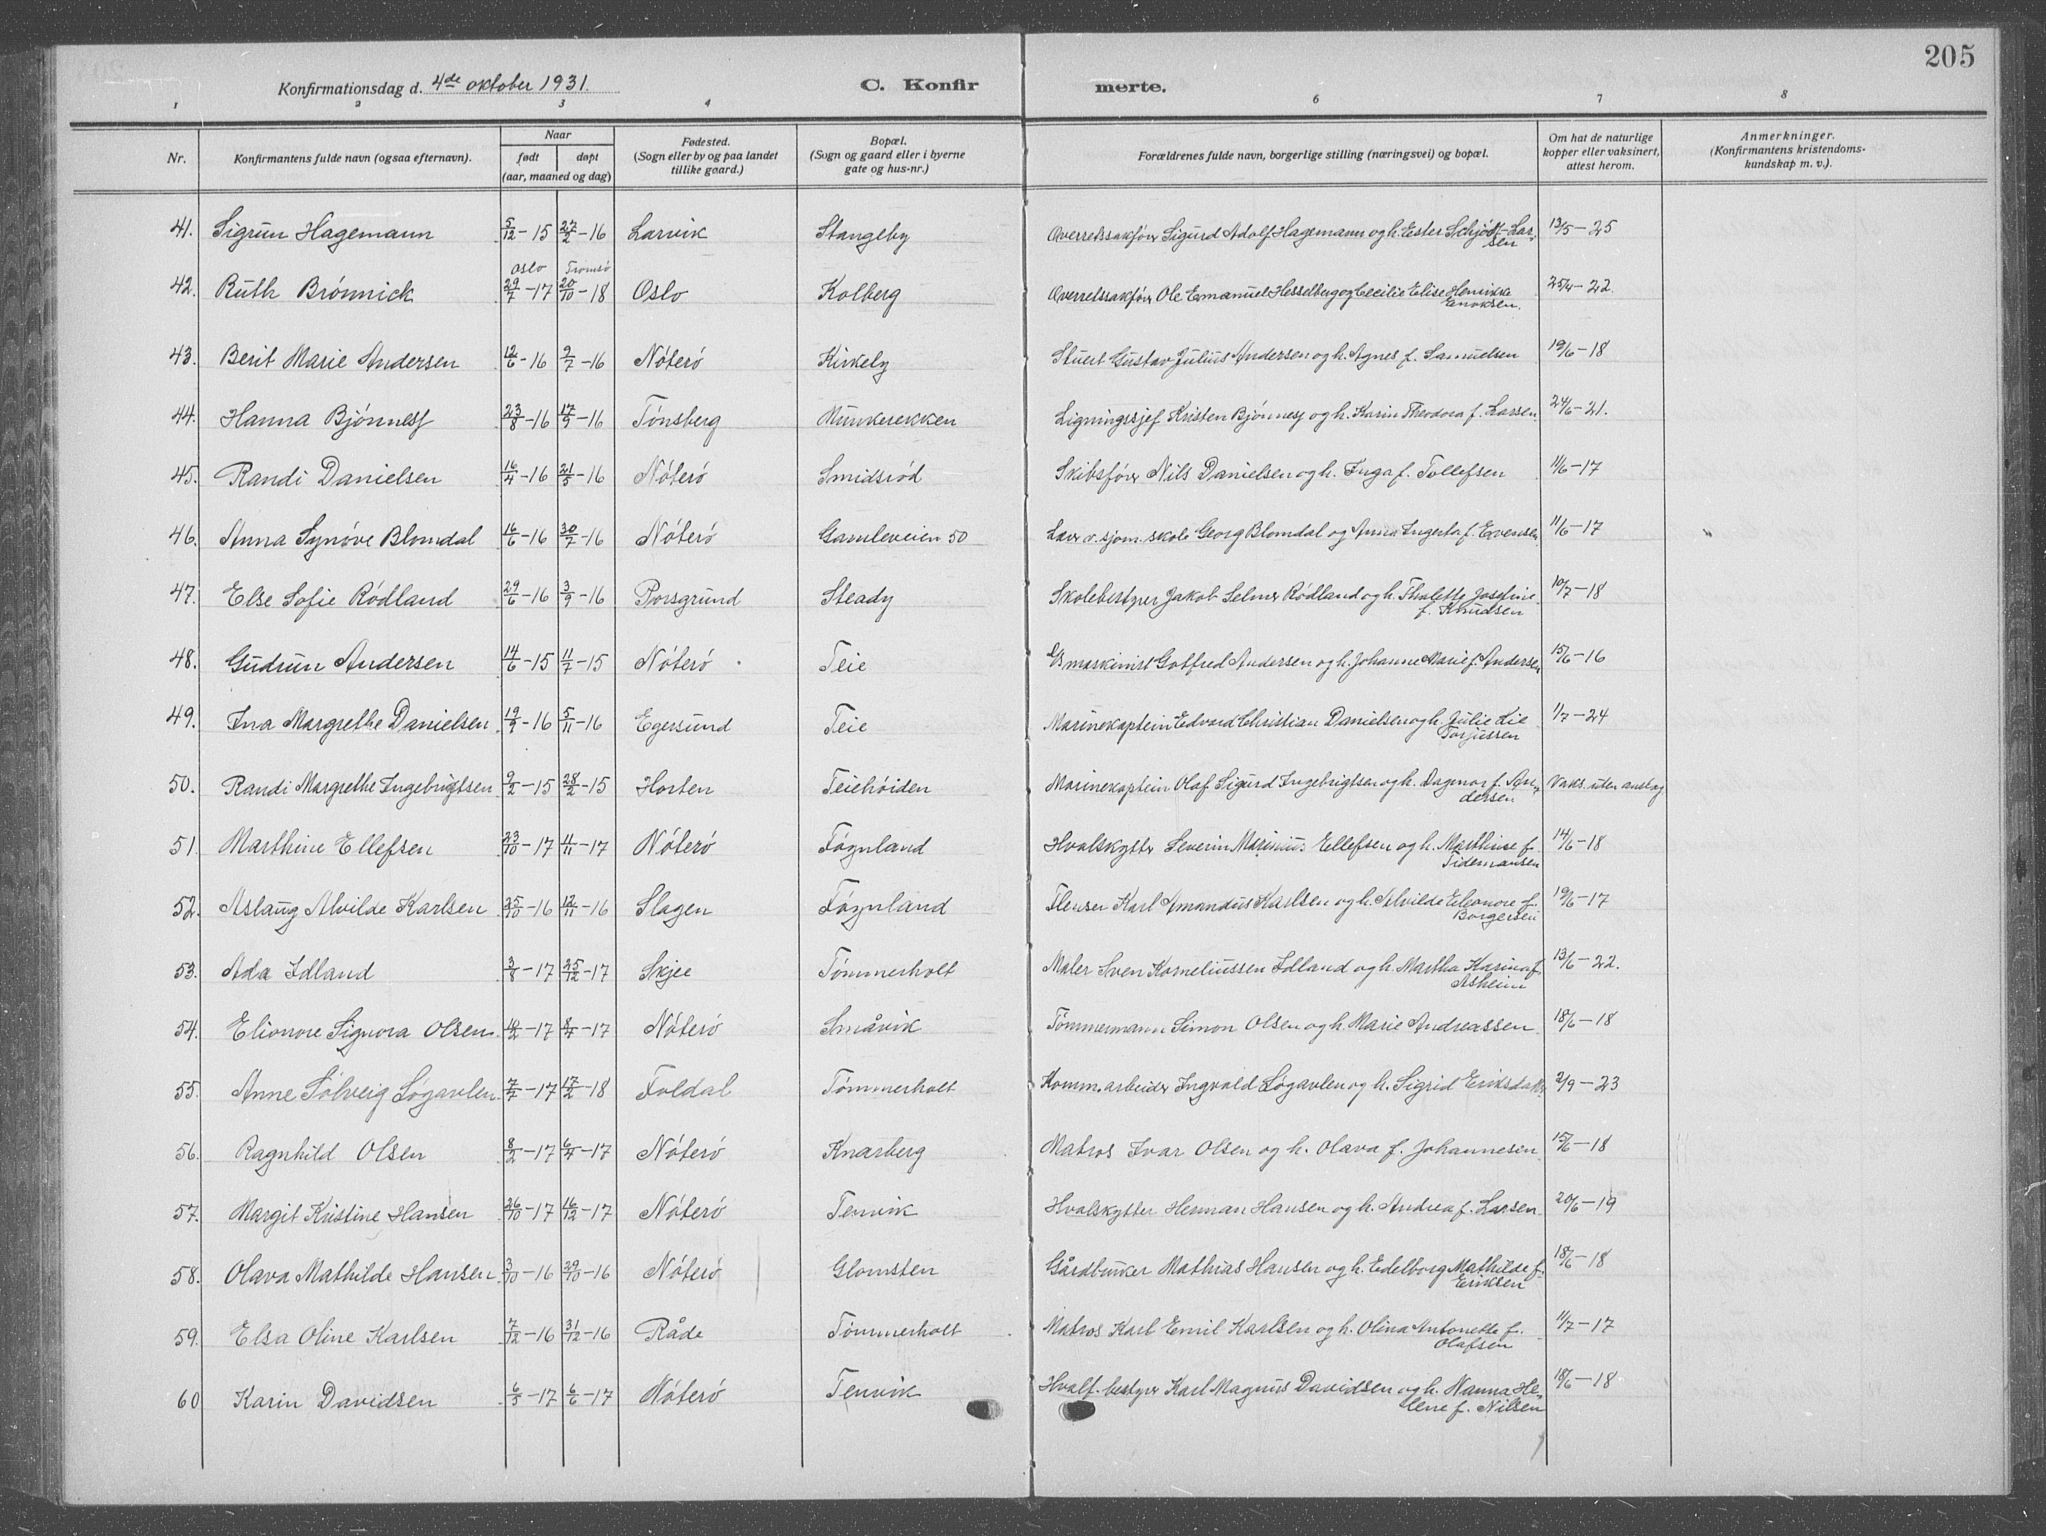 205
Konfirmationsdag d. 4de oktober 1931.
C. Konfirmerte.
1 2 3 4 6 7 8
Nr. Konfirmantens fulde navn (ogsaa efternavn). Naar født døpt (aar, maaned og dag) Fødested. (Sogn eller by og paa landet tillike gaard.) Bopæl. (Sogn og gaard eller i byerne gate og hus-nr.) Forældrenes fulde navn, borgerlige stilling (næringsvei) og bopæl. Om hat de naturlige kopper eller vaksinert, attest herom. Anmerkninger. (Konfirmantens kristendomskundskap m. v.).
41. Sigrun Hagemann 5/12-15 27/2-16 Larvik Stangeby Overretssakfører Sigurd Adolf Hagemann og h. Ester Schjödt-Larsen 13/5-25
Oslo Tromsø
42. Ruth Brønnick 29/7-17 20/10-18 Oslo Kolberg Overretssakfører Ole Emanuel Hesselberg og Cecilie Elise Henrikke Enoksen. 25/4-22
43. Berit Marie Andersen 12/6-16 9/7-16 Nøterø Kirkeby Stuert Gustav Julius Andersen og h. Agnes f. Samuelsen 19/6-18
44. Hanna Bjønnesf 23/8-16 17/9-16 Tønsberg Munkerekken Ligningssjef Kristen Bjønnesf og h. Karin Theodora f. Larsen. 24/6-21.
45. Randi Danielsen 16/4-16 21/5-16 Nøterø Smidsrød Skibsfører Nils Danielsen og h. Inga f. Tollefsen 11/6-17
46. Anna Synøve Blomdal 16/6-16 30/7-16 Nøterø Gamleveien 50 Lærer v. sjøm. skole Georg Blomdal og Anna Ingerta f. Evensen 11/6-17
47. Else Sofie Rødland 29/6-16 3/9-16 Porsgrund Steady Skolebestyrer Jakob Selmer Rødland og h. Thalette Josefine f. Knudsen 10/7-18
48. Gudrun Andersen 14/6-15 11/7-15 Nøterø Teie maskinist Gotfred Andersen og h. Johanne Marie f. Andersen 15/6-16
49. Ina Margrethe Danielsen 19/9-16 5/11-16 Egersund Teie Marinekaptein Edvard Christian Danielsen og h. Julie Lie Torjussen 1/7-24
50. Randi Margrethe Ingebrigtsen 9/2-15 28/2-15 Horten Teiehøiden Marinekaptein Olaf Sigurd Ingebrigtsen og h. Dagmar f. Andersen Vaks. uten anslag
51. Marthine Ellefsen 23/10-17 11/11-17 Nøterø Føynland Hvalskytter Severin Marinius Ellefsen og h. Marthine f. Tidemansen 14/6-18
52. Aslaug Alvilde Karlsen 25/10-16 12/11-16 Slagen Føynland Flenser Karl Amandus Karlsen og h. Alvilde Eleonore f. Borgersen 19/6-17
53. Ada Idland 3/8-17 25/12-17 Skjee Tømmerholt Maler Sven Korneliussen Idland og h. Martha Karina f. Asheim 13/6-22.
54. Elionore Signora Olsen 10/2-17 8/4-17 Nøterø Småvik Tømmermann Simon Olsen og h. Marie Andreassen 18/6-18
55. Anne Sølveig Søgavlen 7/7-17 17/2-18 Foldal Tømmerholt Komm. arbeider Ingvald Søgavlen og h. Sigrid Eriksdatter 2/9-23
56. Ragnhild Olsen 8/2-17 6/4-17 Nøterø Knarberg Matros Ivar Olsen og h. Olava f. Johannesen 15/6-18
57. Margit Kristine Hansen 26/10-17 16/12-17 Nøterø Tenvik Hvalskytter Herman Hansen og h. Andrea f. Larsen 20/6-19
58. Olava Mathilde Hansen 3/10-16 29/10-16 Nøterø Glomsten Gårdbruker Mathias Hansen og h. Edelborg Mathilde f. Eriksen 18/6-18
59. Elsa Oline Karlsen 7/12-16 31/12-16 Råde Tømmerholt Matros Karl Emil Karlsen og h. Olina Antonette f. Olafsen 11/7-17
60 Karin Davidsen 6/5-17 6/6-17 Nøterø Tenvik Hvalf. bestyrer Karl Magnus Davidsen og h. Nanna Helene f. Nilsen 18/6-18